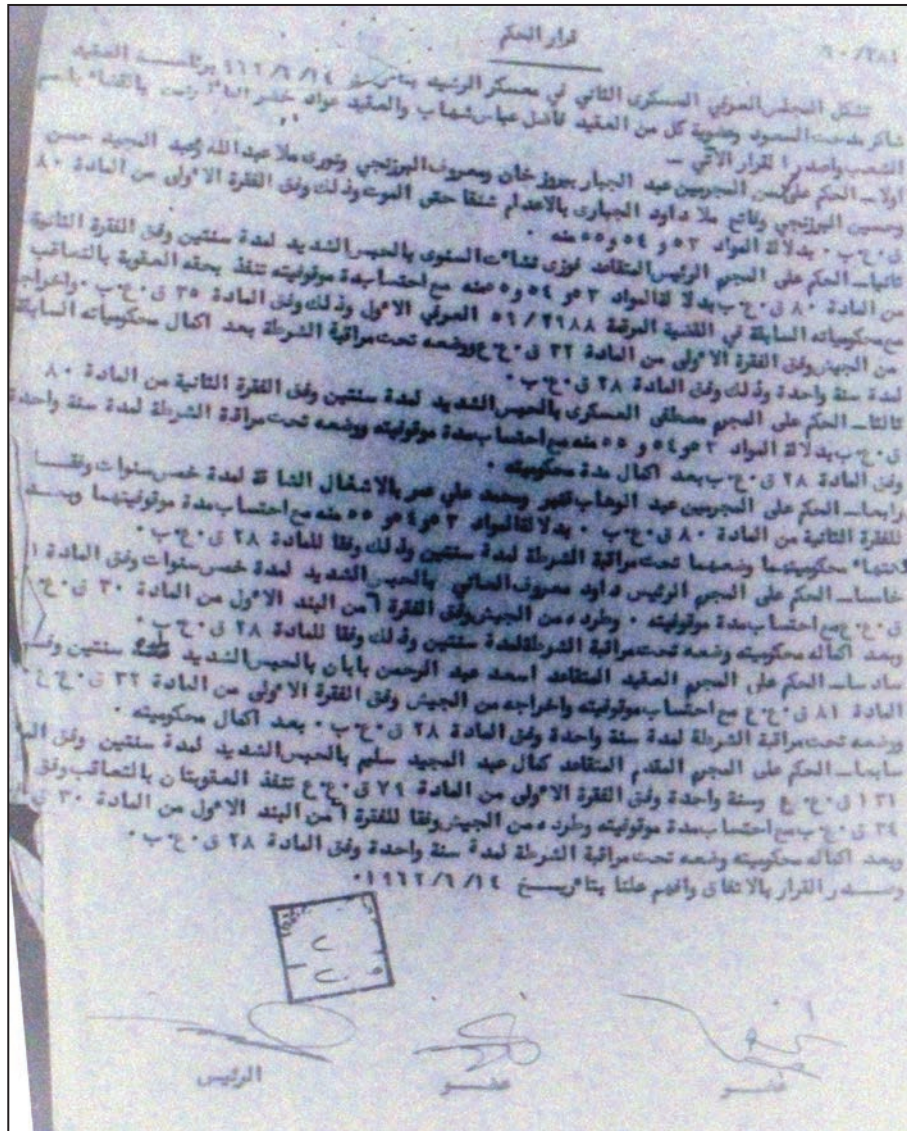 قرار الحكم
تشكل المجلس العرفي العسكري الثاني في معسكر الرشيد ١٤/٦/ برئاسة العقيد
شاكر مدحت السعود وعضوية كل من العقيد فاضل عباس شهاب والعقيد خضر باسم
الشعب واصدر القرار الاتي -
اولا - الحكم على المجرمين عبد الجبار بيروزخان ومعروف البرزنجي ونوري ملا عبدالله وعبد المجيد حسن
وحسين البرزنجي وفاتح ملا داود الجباري بالاعدام شنقا حتى الموت وذلك وفق الفقرة الاولى من المادة ٨٠
ق ٠ ع ٠ ب ٠ بدلالة المواد ٥٣ و ٥٤ و ٥٥ منه ٠
ثانيا - الحكم على المجرم الرئيس المتقاعد فوزي بالحبس الشديد لمدة سنتين وفق الفقرة الثانية
من المادة ٨٠ ق ٠ ع ٠ ب بدلالة المواد ٥٣ و ٥٤ و ٥٥ منه مع احتساب مدة موقوفيته تنفذ بحقه العقوبة بالتعاقب
مع محكومياته السابقة في القضية المرقمة العرفي الاول وذلك وفق المادة ٣٥ ق ٠ ع ٠ ب ٠ واخراجه
من الجيش وفق الفقرة الاولى من المادة ٣٢ ق ٠ ع ٠ ع ووضعه تحت مراقبة الشرطة بعد اكمال محكومياته السابقة
لمدة سنة واحدة وذلك وفق المادة ٢٨ ق ٠ ع ٠ ب ٠
ثالثا - الحكم على المجرم مصطفى العسكري بالحبس الشديد لمدة سنتين وفق الفقرة الثانية من المادة ٨٠
ق ٠ ع ٠ ب بدلالة المواد ٥٣ و ٥٤ و ٥٥ منه مع احتساب مدة موقوفيته ووضعه تحت مراقبة الشرطة لمدة سنة واحدة
وفق المادة ٢٨ ق ٠ ع ٠ ب بعد اكمال مدة محكوميته ٠
رابعا - الحكم على المجرمين عبد الوهاب ومحمد علي عمر بالاشغال الشاقة لمدة خمس سنوات وفقا
للفقرة الثانية من المادة ٨٠ ق ٠ ع ٠ ب ٠ بدلالة المواد ٥٣ و ٥٤ و ٥٥ منه مع احتساب مدة موقوفيتهما وبعد
انتهاء محكوميتهما وضعهما تحت مراقبة الشرطة لمدة سنتين وذلك وفقا للمادة ٢٨ ق ٠ ع ٠ ب ٠
خامسا - الحكم على المجرم الرئيس داود معروف بالحبس الشديد لمدة خمس سنوات وفق المادة
ق ٠ ع ٠ ع مع احتساب مدة موقوفيته ٠ وطرده من الجيش وفق الفقرة ٦ من البند الاول من المادة ٣٠ ق ٠ ع ٠
وبعد اكماله محكوميته وضعه تحت مراقبة الشرطة لمدة سنتين وذلك وفقا للمادة ٢٨ ق ٠ ع ٠ ب ٠
سادسا - الحكم على المجرم العقيد المتقاعد اسعد عبد الرحمن بابان بالحبس الشديد سنتين وفق
المادة ٨١ ق ٠ ع ٠ ع مع احتساب موقوفيته واخراجه من الجيش وفق الفقرة الاولى من المادة ٣٢ ق ٠ ع ٠ ع
ووضعه تحت مراقبة الشرطة لمدة سنة واحدة وفق المادة ٢٨ ق ٠ ع ٠ ب ٠ بعد اكمال محكوميته ٠
سابعا - الحكم على المجرم المقدم المتقاعد كمال عبد المجيد سليم بالحبس الشديد لمدة سنتين وفق
١٣١ ق ٠ ع ٠ ع وسنة واحدة وفق الفقرة الاولى من المادة ٧٩ ق ٠ ع ٠ ع تنفذ العقوبتان بالتعاقب وفق
٣٤ ق ٠ ع ٠ ب مع احتساب مدة موقوفيته وطرده من الجيش وفقا للفقرة ٦ من البند الاول من المادة ٣٠ ق ٠
وبعد اكماله محكوميته وضعه تحت مراقبة الشرطة لمدة سنة واحدة وفق المادة ٢٨ ق ٠ ع ٠ ب ٠
وصدر القرار بالاتفاق وافهم علنا بتاريخ ١٤/٦/١٩٦٢ ٠
عضو
عضو
الرئيس